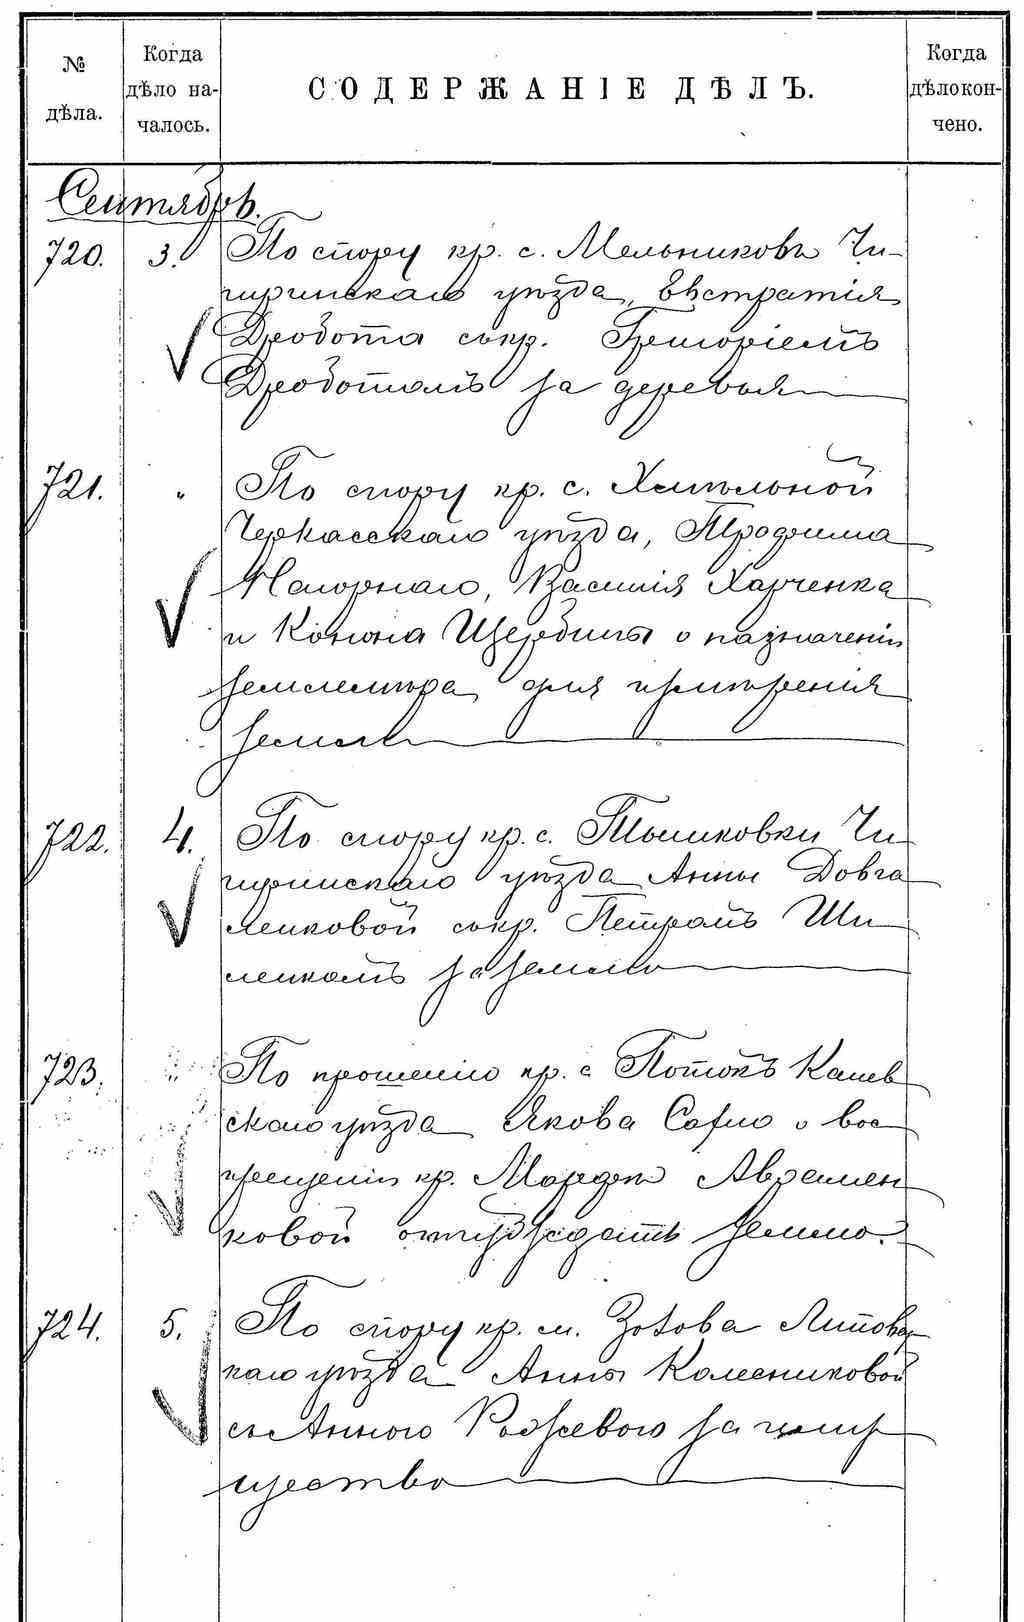 № дѣла.
Когда дѣло началось.
СОДЕРЖАНІЕ ДѢЛЪ.
Когда дѣло кончено.
Сентябрь.
720. 3. По спору кр. с. Мельниковъ Чи-
гиринскаго уѣзда, Евстратія
Дробота съ кр. Григоріемъ
Дроботомъ за деревья
721. " По спору кр. с. Хмѣльной
Черкасскаго уѣзда, Трофима
Нагорнаго, Василія Харченка
и Конона Щербины о назначеніи
землемѣра для примѣренія
земли
722. 4. По спору кр. с. Тымковки Чи-
гиринскаго уѣзда Анны Довга
ленковой съ кр. Петромъ Ши
ленкомъ за землю
723. " По прошенію кр. с Потокъ Канев
скаго уѣзда Якова о вос
прещеніи кр. Авраменковой отчуждать землю.
724. 5. По спору кр. м. Зотова Липовец
каго уѣзда Анны Колесниковой
съ Анною Рожевою за иму
щество